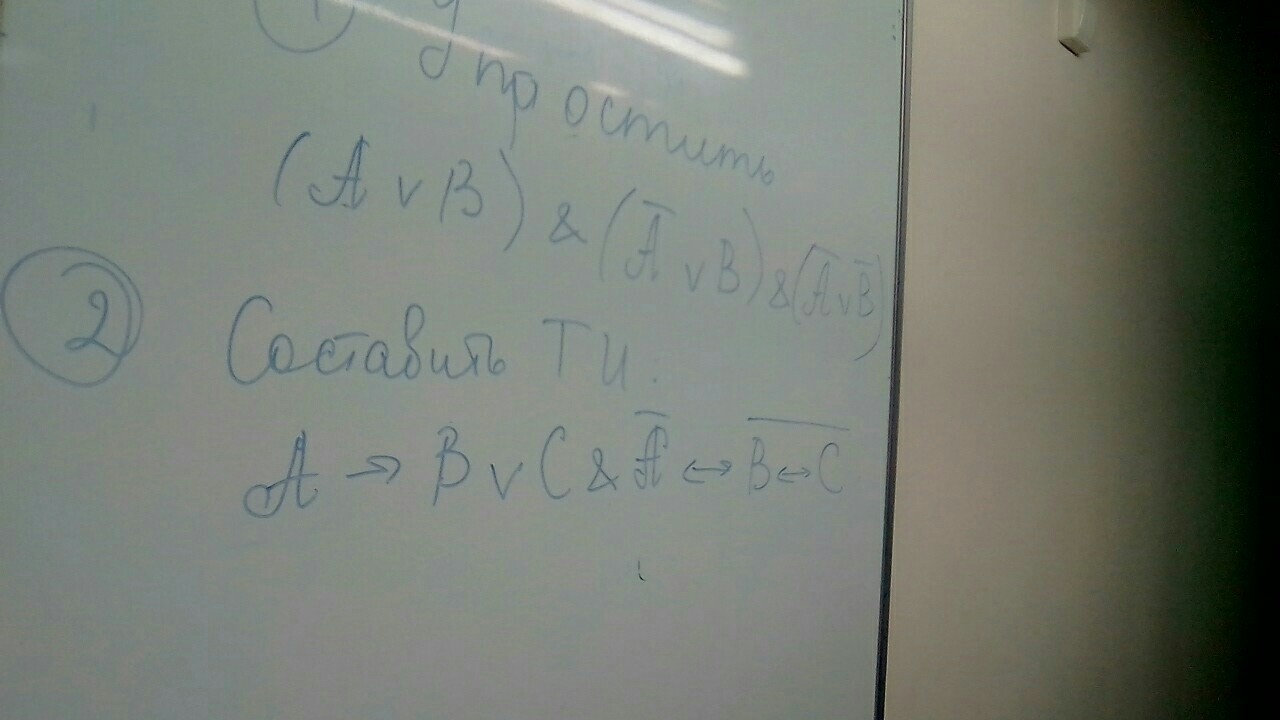 1 Упростить
(A v B) & (A̅ v B) & (A̅ v B̅)
2 Составить ТИ.
A → B v C & A̅ ↔ B̅↔̅C̅